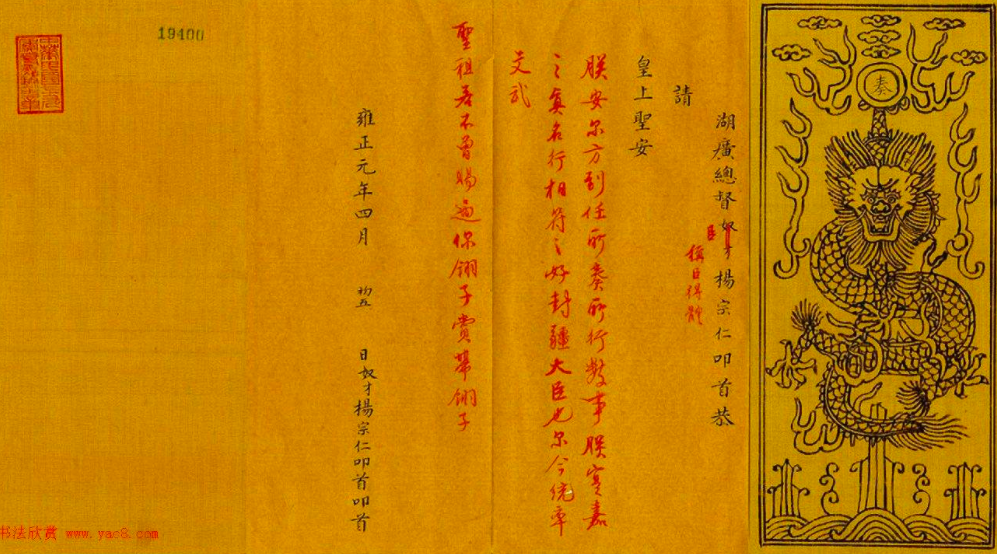 奏
湖廣總督奴才楊宗仁叩首恭
臣
稱臣得體
請
皇上聖安
朕安尔方到任所奏所行数事朕寔嘉
之真名行相符之好封疆大臣也尔今统率
文武
聖祖若不曾賜過你翎子賞帶翎子
雍正元年四月 初五 日奴才楊宗仁叩首叩首
19400
书法欣赏 www.yac8.com